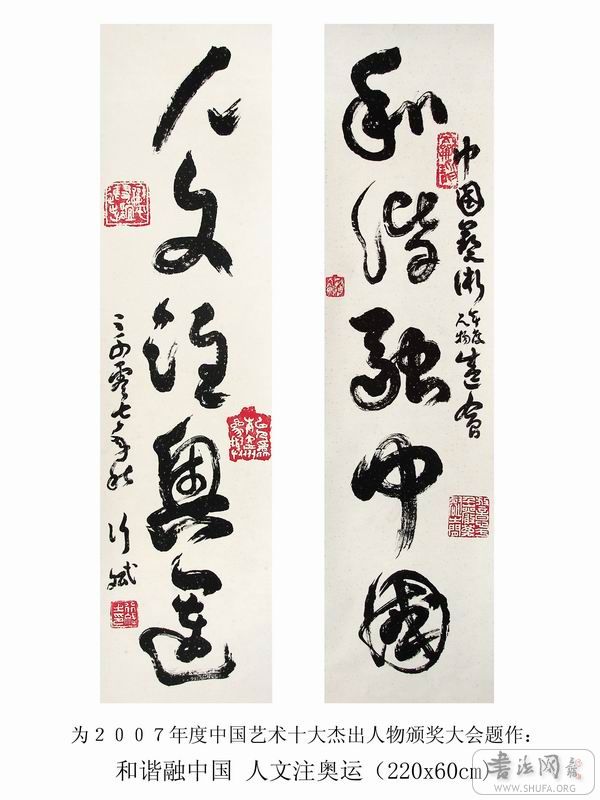 和谐融中国
中国艺术年度人物盛会
人文注奥运
二〇零七年秋 行斌
为２００７年度中国艺术十大杰出人物颁奖大会题作：
和谐融中国 人文注奥运（220x60cm）
书法网
WWW.SHUFA.ORG